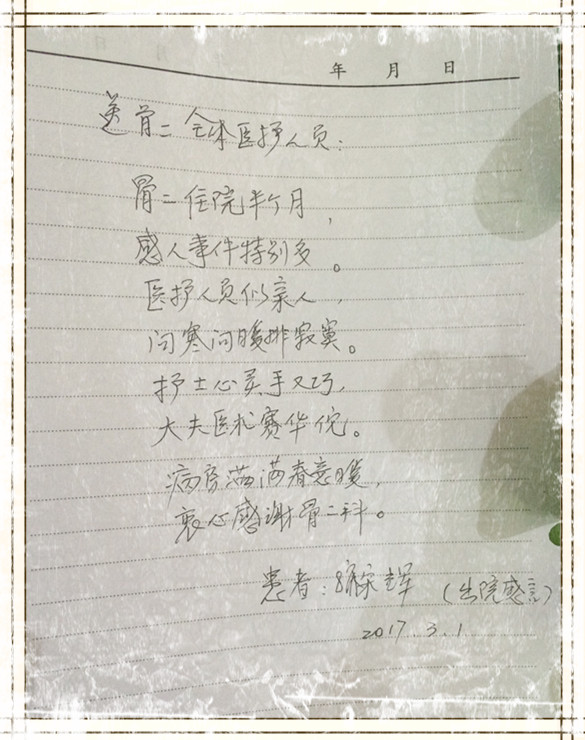 年 月 日
送骨二全体医护人员:
骨二住院半个月,
感人事件特别多。
医护人员似亲人,
问寒问暖排寂寞。
护士心灵手又巧,
大夫医术赛华佗。
病房满满春意暖,
衷心感谢骨二科。
患者: 辉 (出院感言)
2017.3.1